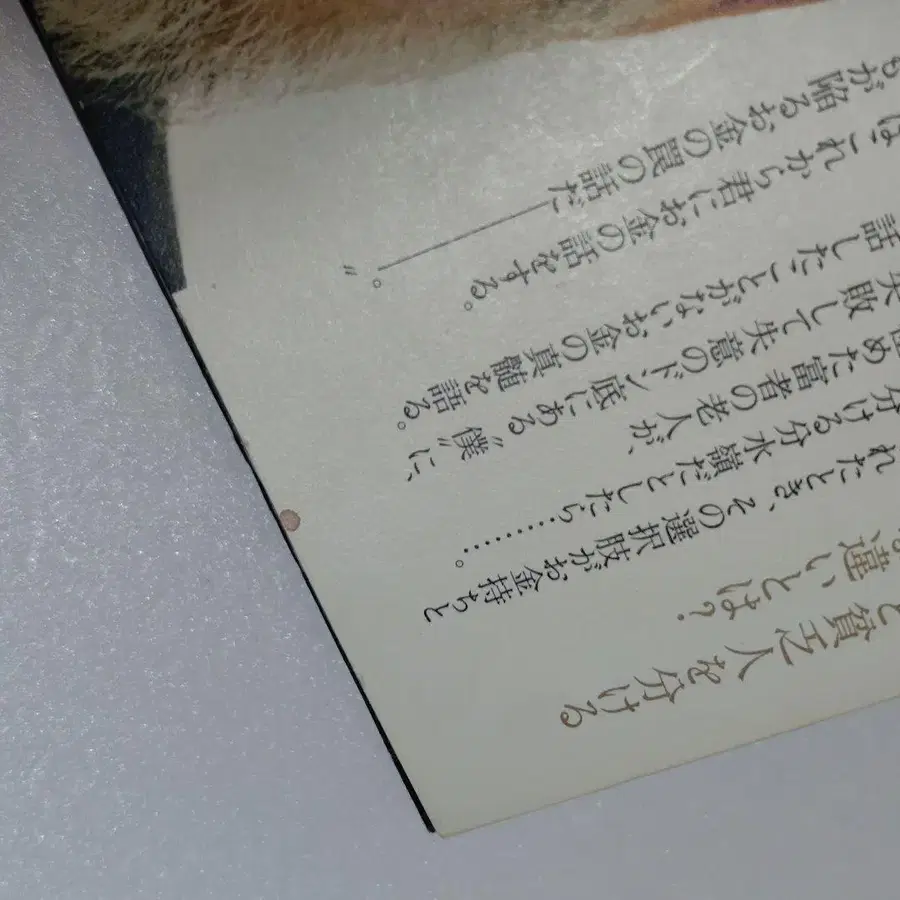 と貧乏人を分ける
違いとは?
れたとき、その選択肢がお金持ちと
分ける分水嶺だとしたら………。
めた富者の老人が、
失敗して失意のドン底にある“僕”に、
話したことがないお金の真髄を語る。
は、これから君にお金の話をする。
もが陥るお金の罠の話だ――――。”